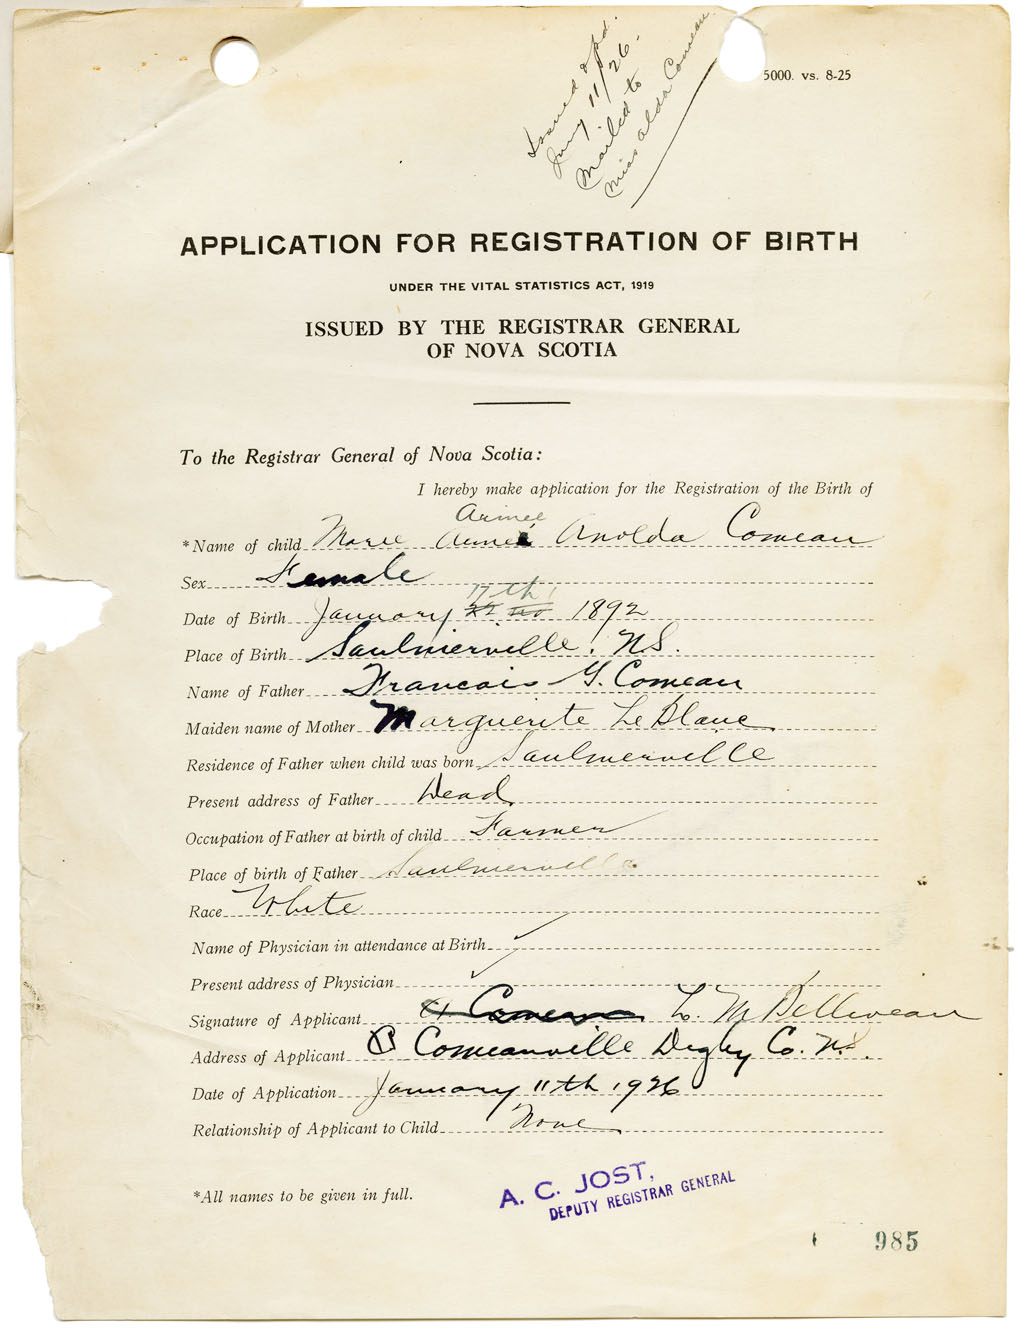 Issued & pd.
Jany 11/26.
Mailed to
Miss Alda Comeau.
5000. vs. 8-25
APPLICATION FOR REGISTRATION OF BIRTH
UNDER THE VITAL STATISTICS ACT, 1919
ISSUED BY THE REGISTRAR GENERAL
OF NOVA SCOTIA
To the Registrar General of Nova Scotia:
I hereby make application for the Registration of the Birth of
Aimee
*Name of child Marie Anolda Comeau
Sex Female
17th
Date of Birth January 1892
Place of Birth Saulnierville. N.S.
Name of Father Francois G. Comeau
Maiden name of Mother Marguerite Le Blanc
Residence of Father when child was born Saulnierville
Present address of Father Dead
Occupation of Father at birth of child Farmer
Place of birth of Father Saulnierville
Race White
Name of Physician in attendance at Birth
Present address of Physician
Signature of Applicant L. M Belliveau
Address of Applicant Comeauville Digby Co. N.S.
Date of Application January 11th 1926
Relationship of Applicant to Child None
*All names to be given in full.
A. C. JOST,
DEPUTY REGISTRAR GENERAL
985